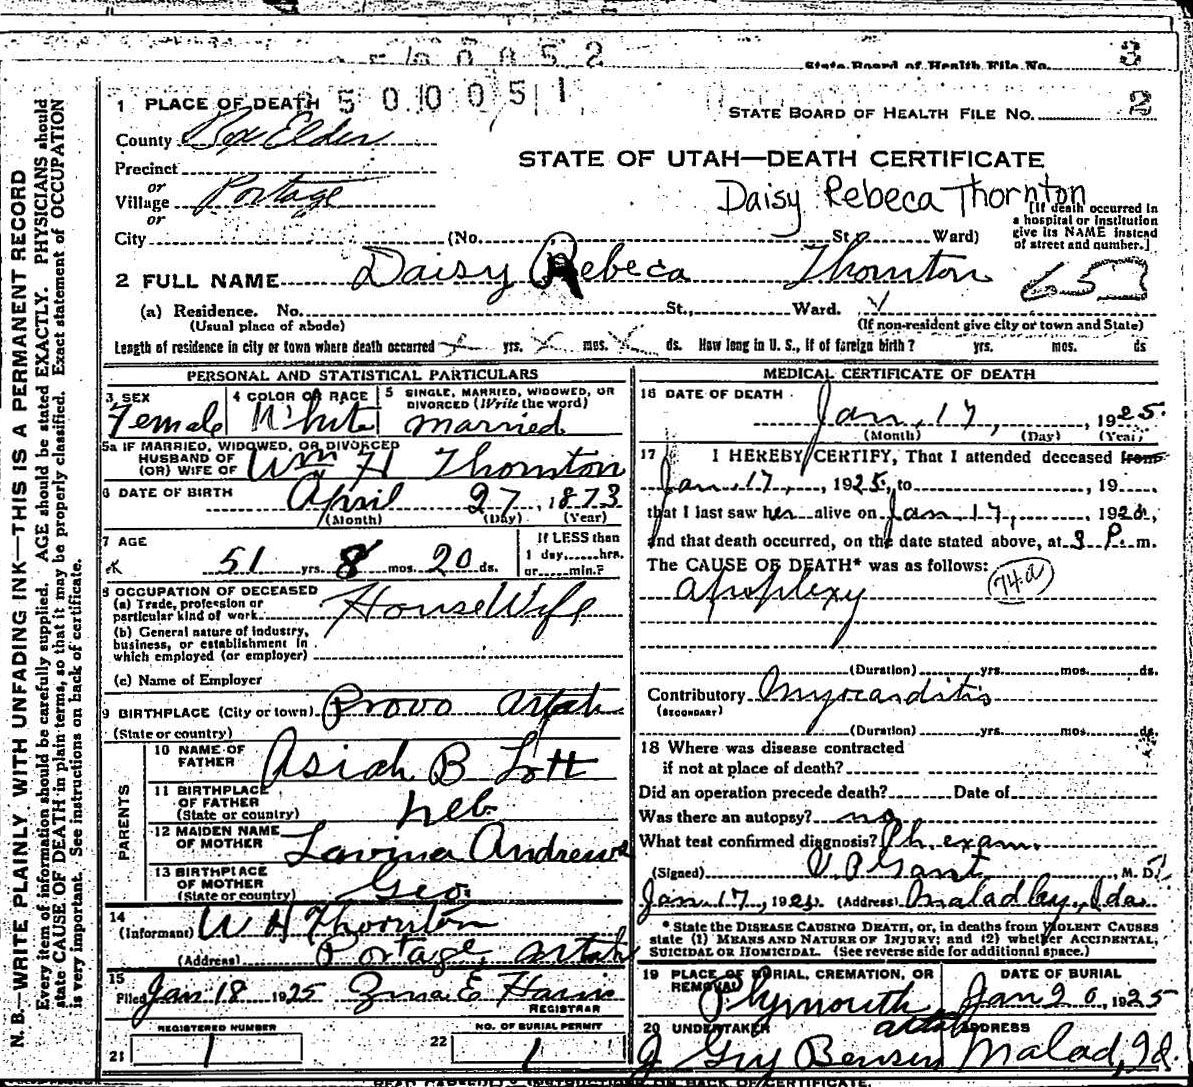 0052
State Board of Health File No. 3
500051
1 PLACE OF DEATH
STATE BOARD OF HEALTH FILE No. 2
County Box Elder
STATE OF UTAH—DEATH CERTIFICATE
Precinct
or
Village Portage
Daisy Rebeca Thornton
or
City (No. St. Ward)
[If death occurred in
a hospital or institution
give its NAME instead
of street and number.]
2 FULL NAME Daisy Rebeca Thornton
653
(a) Residence. No. St., Ward.
(Usual place of abode) (If non-resident give city or town and State)
Length of residence in city or town where death occurred x yrs. x mos. x ds. How long in U. S., if of foreign birth? yrs. mos. ds
PERSONAL AND STATISTICAL PARTICULARS
3 SEX Female
4 COLOR OR RACE White
5 SINGLE, MARRIED, WIDOWED, OR
DIVORCED (Write the word)
married
5a IF MARRIED, WIDOWED, OR DIVORCED
HUSBAND OF
(OR) WIFE OF Wm H Thornton
6 DATE OF BIRTH April 27, 1873
(Month) (Day) (Year)
7 AGE
51 yrs. 8 mos. 20 ds.
If LESS than
1 day,......hrs.
or......min.?
8 OCCUPATION OF DECEASED
(a) Trade, profession or
particular kind of work House Wife
(b) General nature of industry,
business, or establishment in
which employed (or employer)
(c) Name of Employer
9 BIRTHPLACE (City or town) Provo
(State or country)
PARENTS
10 NAME OF
FATHER Asiah B Lott
11 BIRTHPLACE
OF FATHER
(State or country) Neb.
12 MAIDEN NAME
OF MOTHER Lavina Andrews
13 BIRTHPLACE
OF MOTHER
(State or country) Geo.
14
(Informant) W H Thornton
(Address) Portage
15
Filed Jan 18 1925 E Harris
REGISTRAR
REGISTERED NUMBER
21 1
NO. OF BURIAL PERMIT
22 1
MEDICAL CERTIFICATE OF DEATH
16 DATE OF DEATH
Jan, 17, 1925.
(Month) (Day) (Year)
17 I HEREBY CERTIFY, That I attended deceased from
Jan, 17, 1925, to , 19
that I last saw her alive on Jan 17, 192
and that death occurred, on the date stated above, at 3 P. m.
The CAUSE OF DEATH* was as follows:
74a
Apoplexy
(Duration) yrs. mos. ds.
Contributory Myocarditis
(SECONDARY)
(Duration) yrs. mos. ds.
18 Where was disease contracted
if not at place of death?
Did an operation precede death? Date of
Was there an autopsy? no
What test confirmed diagnosis? Ph. exam.
(Signed) , M. D.
Jan. 17, 192 (Address) Malad City, Ida.
* State the DISEASE CAUSING DEATH, or, in deaths from VIOLENT CAUSES
state (1) MEANS AND NATURE OF INJURY; and (2) whether ACCIDENTAL,
SUICIDAL OR HOMICIDAL. (See reverse side for additional space.)
19 PLACE OF BURIAL, CREMATION, OR
REMOVAL
Plymouth
DATE OF BURIAL
Jan 20, 1925
20 UNDERTAKER
J Guy Bensen
ADDRESS
Malad, Id.
N. B.—WRITE PLAINLY WITH UNFADING INK—THIS IS A PERMANENT RECORD
Every item of information should be carefully supplied. AGE should be stated EXACTLY. PHYSICIANS should
state CAUSE OF DEATH in plain terms, so that it may be properly classified. Exact statement of OCCUPATION
is very important. See instructions on back of certificate.